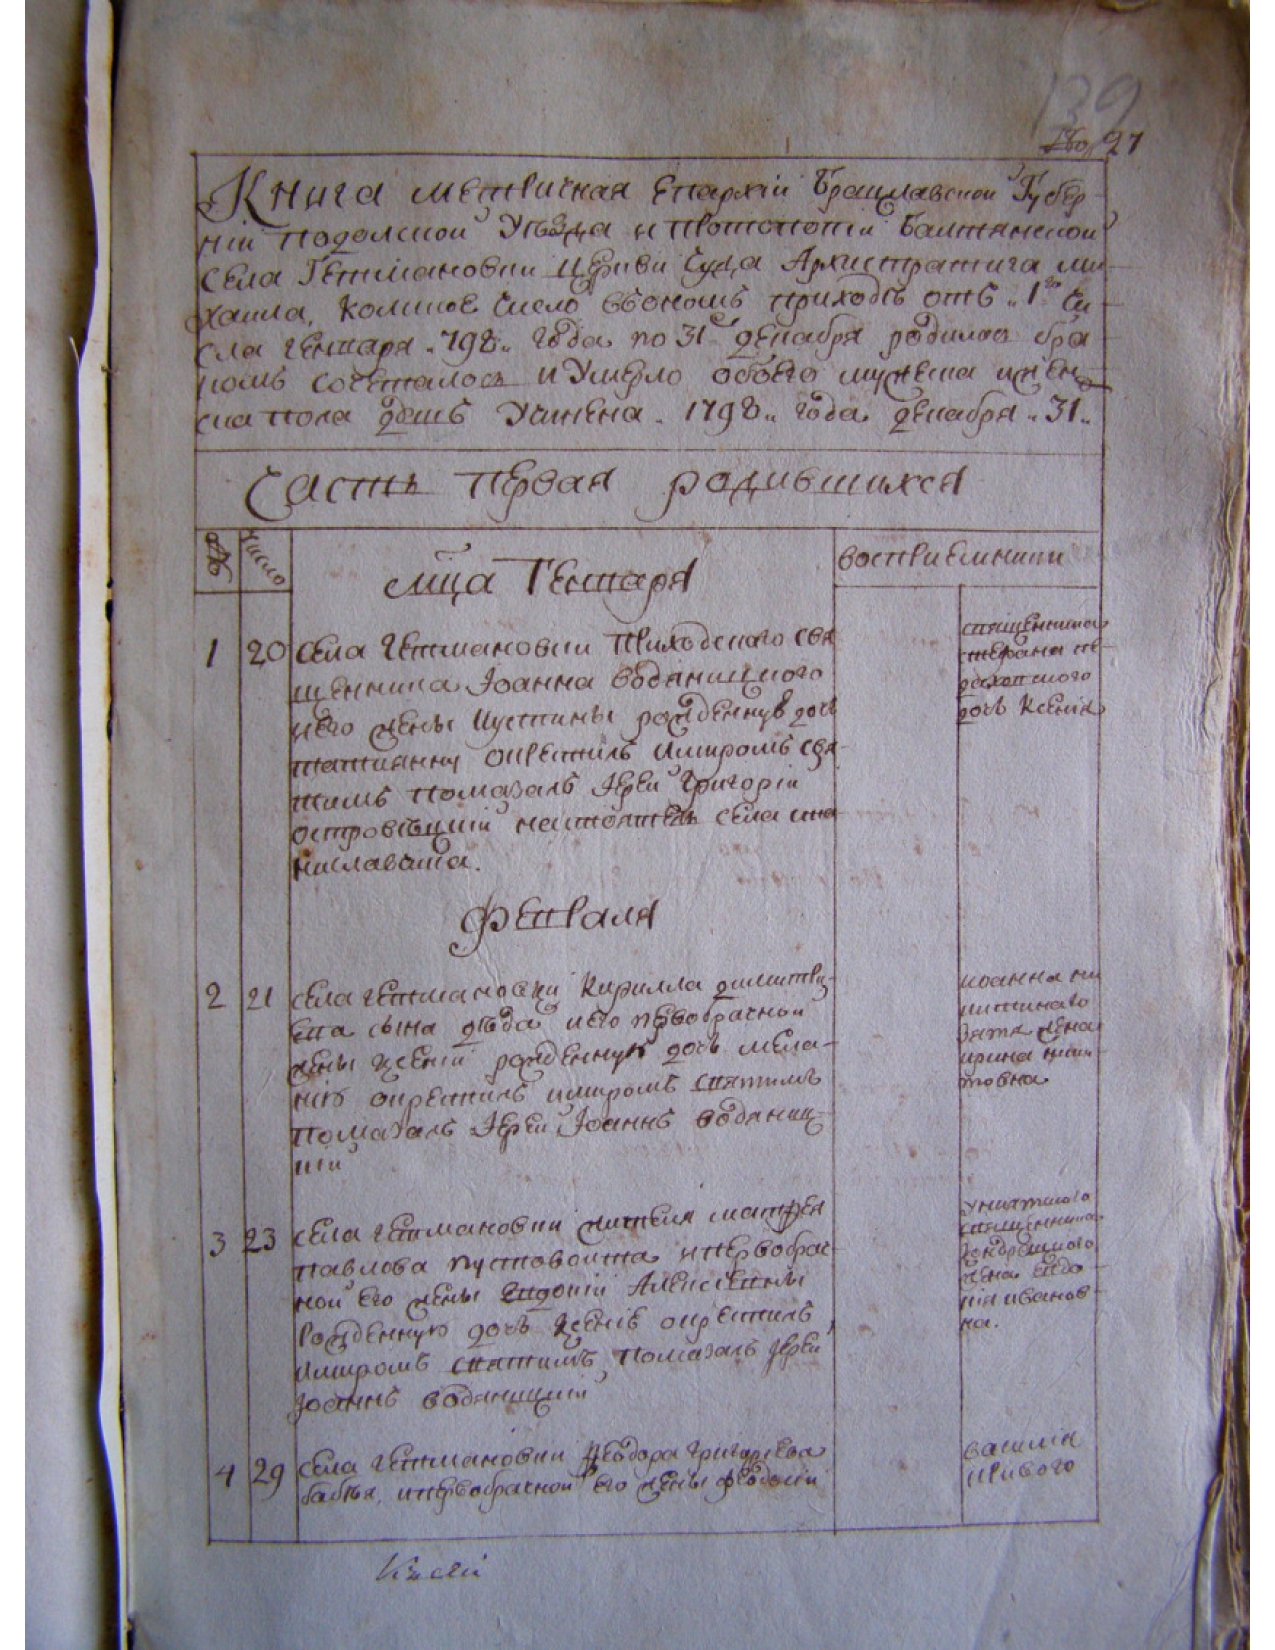 139
27
Книга метричная Епархіи Брацлавской Губер-
ніи подолской Уѣзда и протопопіи Балтянской
села Гетмановки церкви Чуда Архистратига ми-
хаила, Коликое число вѣономъ приходѣ отъ „1го чи-
сла генваря „798„ года по 31е декабря родилос бра
комъ сочеталось и Умерло обоего мужеска ижен-
ска пола душъ Учинена „1798„ года декабря „31„
Часть первая родившихся
№ число
мца Генваря
воспріемники
1 20 села гетмановки Приходского свя
щенника Іоанна водяницкого
иего жены Иустины рожденную дочъ
татиянну окрестилъ имиромъ свя
тимъ помазалъ Іерей Григорій
островѣцкій настоятель села ста
ниславчика.
священника
стефана
дочъ Ксенія
Февраля
2 21 села гетмановки Кирилла димитри-
ева сына дѣда иего первобрачной
жены ксеніи рожденную дочъ мела-
нію окрестилъ имиромъ святимъ
помазалъ Іерей Іоаннъ водяниц-
кій
иоанна ни
китинаго
зятя жена
ирина ники-
товна
3 23 села гетмановки жителя матфея
павлова пустовойта ипервобрач-
ной его жены Евдокіи Алексіевны
рожденную дочъ ксенію окрестилъ,
имиромъ святимъ помазалъ Іерей
Іоаннъ водяницкій
униятского
священника
жена Евдо-
кія иванов-
на.
4 29 села гетмановки Феодора григориева
бабія, ипервобрачной его жены феодосіи
василія
кривого